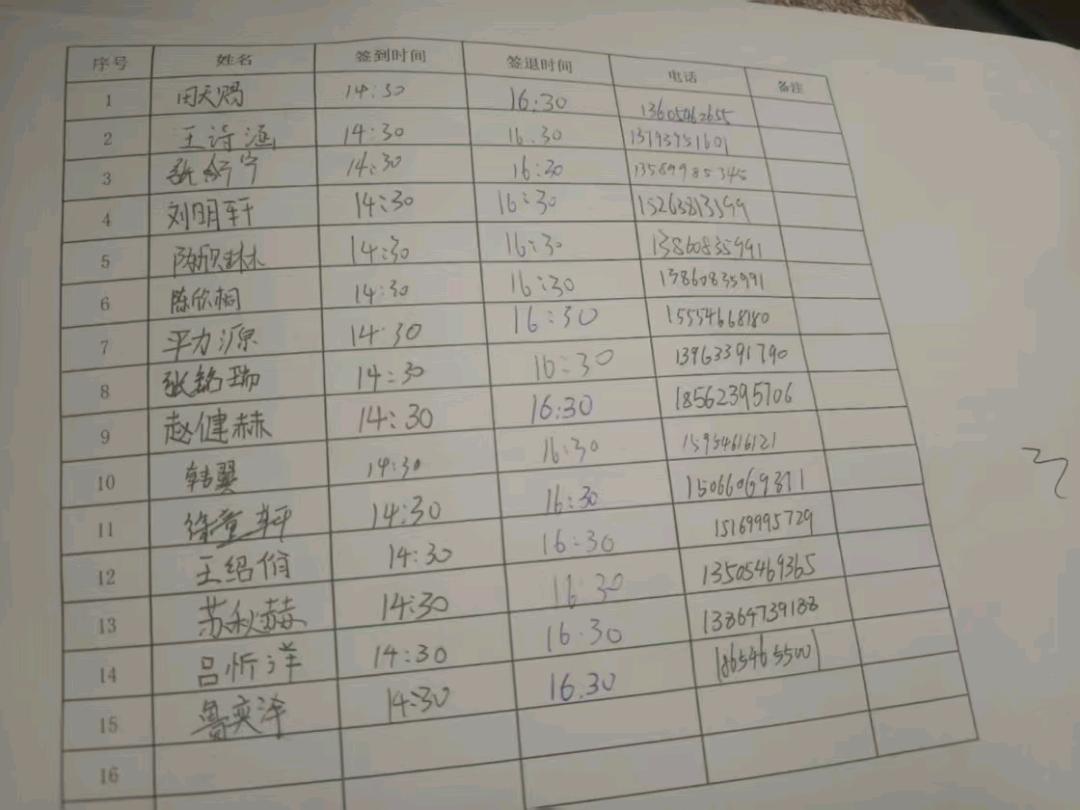 序号 姓名 签到时间 签退时间 电话 备注
1 田天赐 14:30 16:30 13605462655
2 王诗涵 14:30 16:30 13793951601
3 14:30 16:30 13589985345
4 刘明轩 14:30 16:30 15263813599
5 陈欣琳 14:30 16:30 13860835991
6 陈欣桐 14:30 16:30 13860835991
7 平力源 14:30 16:30 15554668180
8 张铭瑞 14:30 16:30 13963391790
9 赵健赫 14:30 16:30 18562395706
10 韩翼 14:30 16:30 15954616121
11 徐童轩 14:30 16:30 15066069371
12 王绍俏 14:30 16:30 15169995729
13 苏秋赫 14:30 16:30 13505469365
14 吕忻洋 14:30 16:30 13864739188
15 鲁奕泽 14:30 16:30 18654655001
16